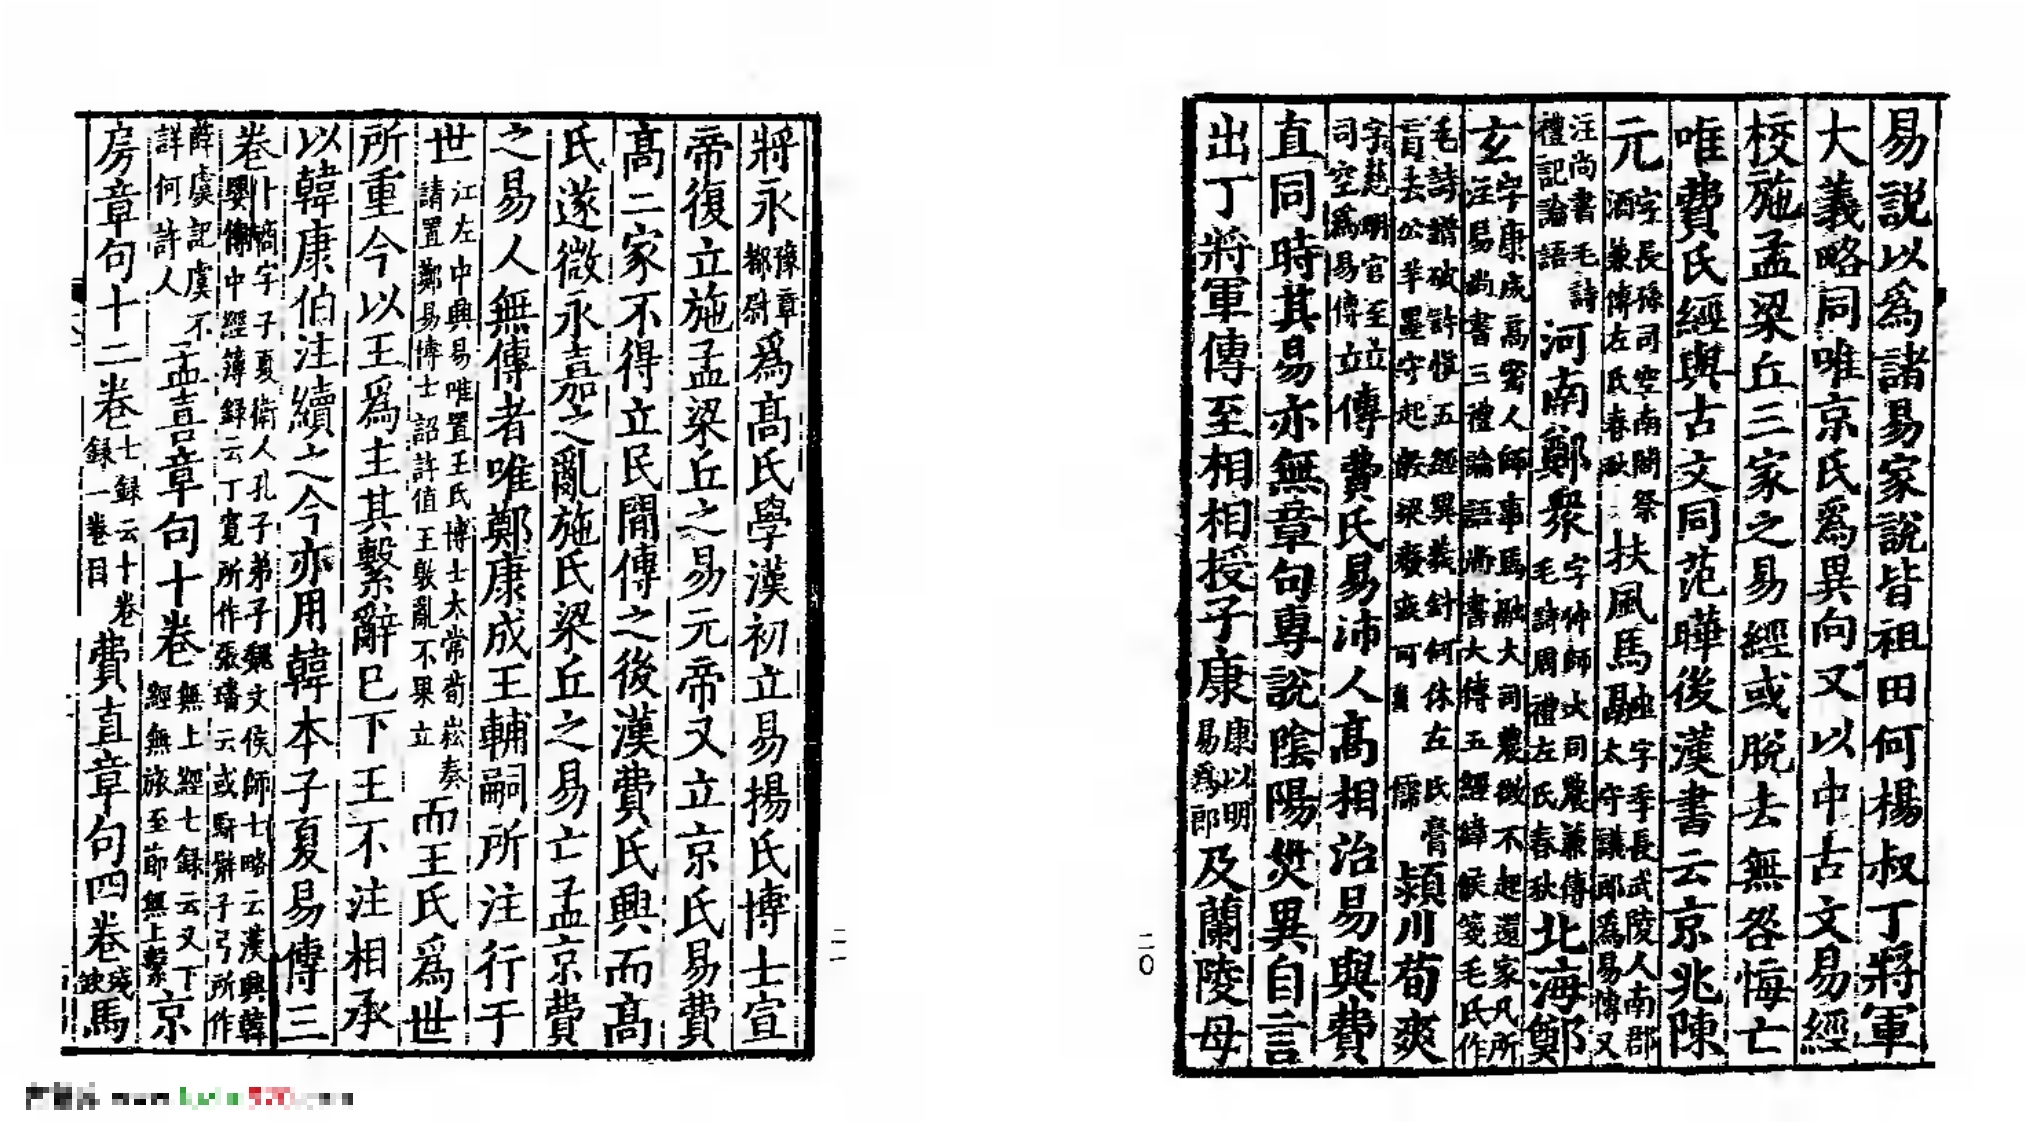 易說以爲諸易家說皆祖田何楊叔丁將軍
大義略同唯京氏爲異向又以中古文易經
校施孟梁丘三家之易經或脫去無咎悔亡
唯費氏經與古文同范曄後漢書云京兆陳
元字長孫司空南閣祭酒兼傳左氏春秋扶風馬融字季長茂陵人南郡太守議郎爲易傳又
注尚書毛詩禮記論語河南鄭衆字仲師大司農兼傳毛詩周禮左氏春秋北海鄭
玄字康成高密人師事馬融大司農徵不起還家凡所注易尚書三禮論語尚書大傳五經緯候箋毛氏作
毛詩譜破許慎五經異義針何休左氏膏肓去公羊墨守起穀梁廢疾可謂儒潁川荀爽
字慈明官至司空爲易言立傳費氏易沛人高相治易與費
直同時其易亦無章句專說陰陽災異自言
出丁將軍傳至相相授子康康以明易爲郎及蘭陵毋
二〇
將永豫章都尉爲高氏學漢初立易揚氏博士宣
帝復立施孟梁丘之易元帝又立京氏易費
高二家不得立民間傳之後漢費氏興而高
氏遂微永嘉之亂施氏梁丘之易亡孟京費
之易人無傳者唯鄭康成王輔嗣所注行于
世江左中興易唯置王氏博士太常荀崧奏請置鄭易博士詔許值王敦亂不果立而王氏爲世
所重今以王爲主其繫辭已下王不注相承
以韓康伯注續之今亦用韓本子夏易傳三
卷卜商字子夏衛人孔子弟子魏文侯師七略云漢興韓嬰傳中經簿録云丁寬所作張璠云或馯臂子弓所作
薛虞記虞不詳何許人孟喜章句十卷無上經七録云又下經無旅至節無上繫京
房章句十二卷七録云十卷録一卷目費直章句四卷殘缺馬
二一